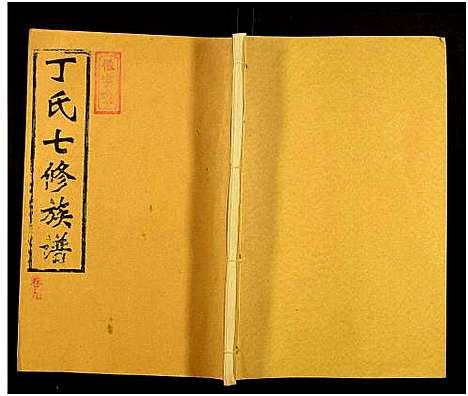 丁氏七修族譜
卷十九